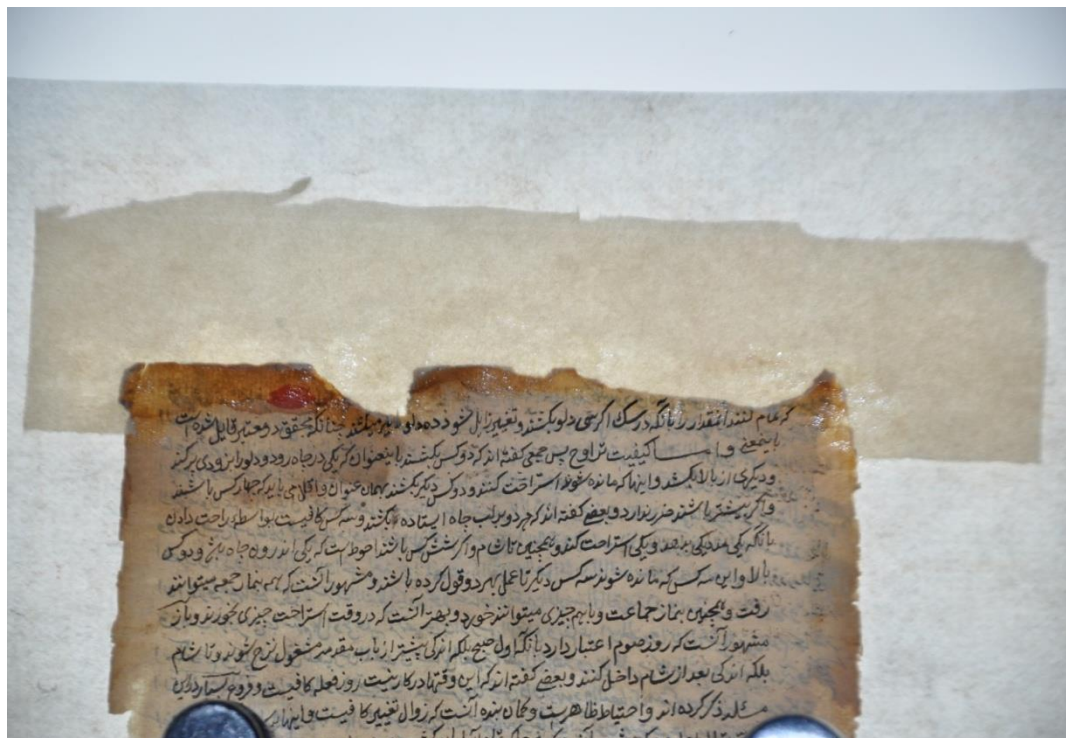 که عام کنند آنقدار را با آنکه در سگ اگر سی دلو بکشند و تغییر زایل شود ده دلو دیگر میکشند چنانکه محقق در معتبر قایل شده است
باینمعنے و اما کیفیت تراوح پس جمعی گفته اند که دو کس بکشند باینعنوان که یکی در چاه رود و دلو را بزودی پر کند
و دیگری از بالا بکشد و اینها که مانده شوند استراحت کنند و دو کس دیگر بکشند بهمان عنوان و اقلا می باید که چهار کس باشند
و اگر بیشتر باشند ضرر ندارد و بعضے گفته اند که هر دو بر لب چاه ایستاده بکشند و سه کس کافیست بواسطه راحت دادن
با آنکه یکی مدد یکی بدهد و یکی استراحت کند و همچنین تا شام و اگر شش کس باشند احوط است که یکی اندرون چاه باشد و دو کس
بالا و این سه کس که مانده شوند سه کس دیگر تا عمل بهر دو قول کرده باشند و مشهور آنست که همه بنماز جمعه میتوانند
رفت و همچنین بنماز جماعت و باهم چیزی میتوانند خورد و بهتر آنست که در وقت استراحت چیزی بخورند و باز
مشهور آنست که روز صوم اعتبار دارد با آنکه اول صبح بلکه اندکی پیشتر از باب مقدمه مشغول نزح شوند و تا شام
بلکه اندکی بعد از شام داخل کنند و بعضے گفته اند که این وقتها در کار نیست روز فعله کافیست و فروع بسیار درین
مسئله ذکر کرده اند و احتیاط ظاهرست و گمان بنده آنست که زوال تغییر کافیست و اینها